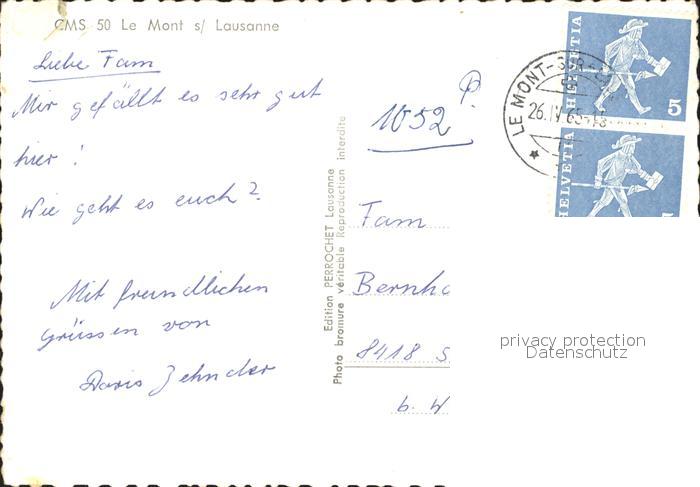 CMS 50 Le Mont s/ Lausanne
Liebe Fam
Mir gefällt es sehr gut
hier!
Wie geht es euch?
Mit freundlichen
Grüssen von
Doris Zehnder
Edition PERROCHET Lausanne
Photo bromure véritable Reproduction interdite
P.
1052
Fam
Bernha
8418 S
b. W
LE MONT-SUR-L
26.IV.65-18
HELVETIA
5
HELVETIA
privacy protection
Datenschutz